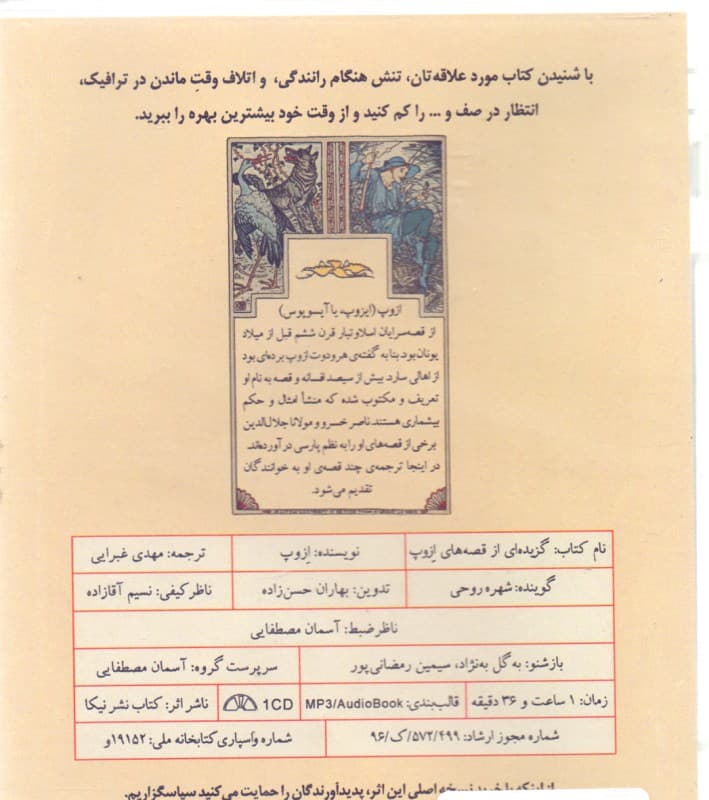 با شنیدن کتاب مورد علاقه‌تان، تنش هنگام رانندگی، و اتلاف وقتِ ماندن در ترافیک،
انتظار در صف و ... را کم کنید و از وقت خود بیشترین بهره را ببرید.
ازوپ (ایزوپ، یا آیسوپوس)
از قصه‌سرایان اسلاوتبار قرن ششم قبل از میلاد
یونان بود. بنا به گفته‌ی هرودوت ازوپ برده‌ای بود
از اهالی سارد. بیش از سیصد افسانه و قصه به نام او
تعریف و مکتوب شده که منشأ امثال و حکم
بیشماری هستند. ناصر خسرو و مولانا جلال‌الدین
برخی از قصه‌های او را به نظم پارسی درآورده‌اند.
در اینجا ترجمه‌ی چند قصه‌ی او به خوانندگان
تقدیم می‌شود.
نام کتاب: گزیده‌ای از قصه‌های اِزوپ
نویسنده: اِزوپ
ترجمه: مهدی غبرایی
گوینده: شهره روحی
تدوین: بهاران حسن‌زاده
ناظر کیفی: نسیم آقازاده
ناظر ضبط: آسمان مصطفایی
بازشنو: به‌گل به‌نژاد، سیمین رمضانی‌پور
سرپرست گروه: آسمان مصطفایی
زمان: ۱ ساعت و ۳۶ دقیقه
قالب‌بندی: MP3/AudioBook
1CD
ناشر اثر: کتاب نشر نیکا
شماره مجوز ارشاد: ۵۷۲/۴۹۹/ک/۹۶
شماره واسپاری کتابخانه ملی: ۱۹۱۵۲و
از اینکه با خرید نسخه اصلی این اثر، پدیدآورندگان را حمایت می‌کنید سپاسگزاریم.